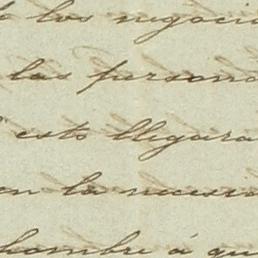 de los negocio
las persona
esto llegara
en la necesi
hombre á qu